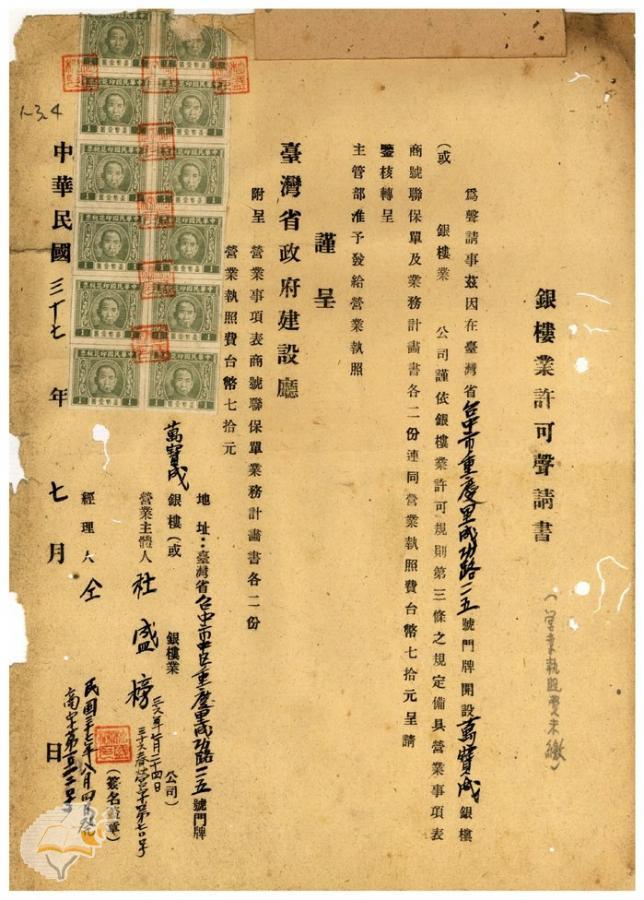 銀樓業許可聲請書
(營業執照費未繳)
為聲請事茲因在臺灣省台中市重慶里成功路一二五號門牌開設萬寶成銀樓
(或 銀樓業 公司謹依銀樓業許可規則第三條之規定備具營業事項表
商號聯保單及業務計畫書各二份連同營業執照費台幣七拾元呈請
鑒核轉呈
主管部准予發給營業執照
謹呈
臺灣省政府建設廳
附呈 營業事項表商號聯保單業務計畫書各二份
營業執照費台幣七拾元
地址:臺灣省台中市中區重慶里成功路一二五號門牌
萬寶成 銀樓(或 銀樓業 公司)
營業主體人 杜盛榜
(簽名蓋章)
經理人 仝
中華民國三十七年七月 日
1-3,4